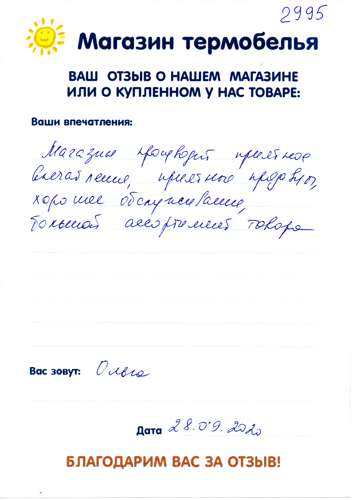 2995
Магазин термобелья
ВАШ ОТЗЫВ О НАШЕМ МАГАЗИНЕ
ИЛИ О КУПЛЕННОМ У НАС ТОВАРЕ:
Ваши впечатления:
Магазин производит приятное
впечатление, приятные продавцы,
хорошее обслуживание,
большой ассортимент товара
Вас зовут: Ольга
Дата 28.09.2020
БЛАГОДАРИМ ВАС ЗА ОТЗЫВ!